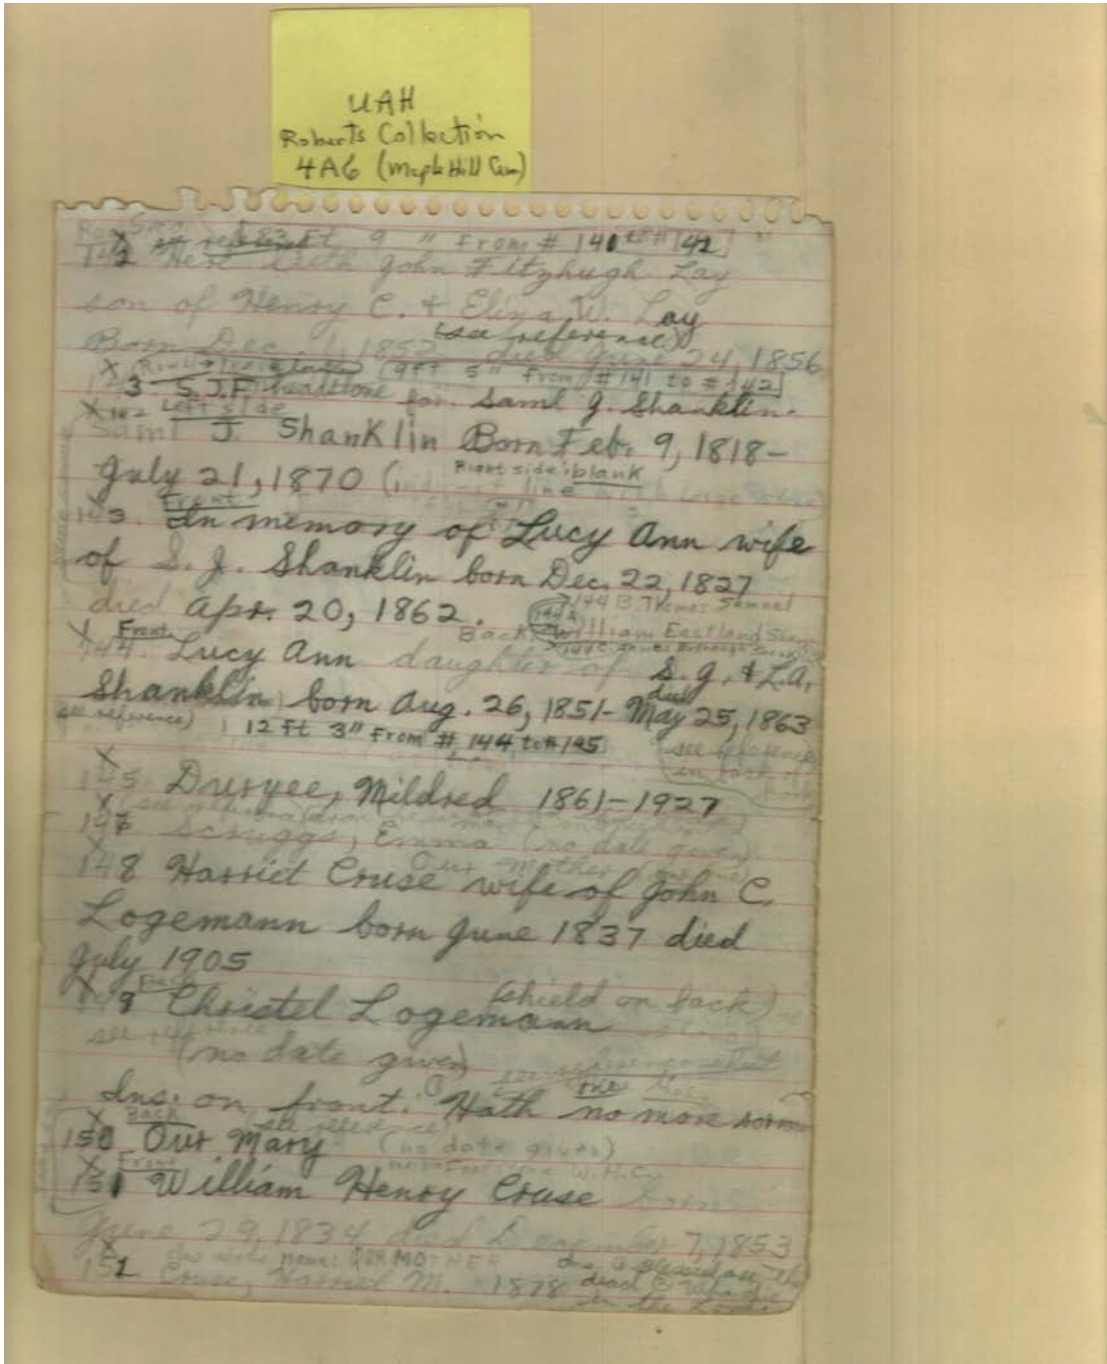 UAH
Roberts Collection
4A6 (Maple Hill Cem)
83 Ft 9 " From # 141 to # 142
142 Here lieth John Fitzhugh Lay
son of Henry C. & Eliza W. Lay
(see reference)
Born Dec. 1, 1852 died June 24, 1856
X (9 ft 5" From # 141 to # 142)
3 S.J.F. headstone for Saml J. Shanklin.
X Left side
Saml J. Shanklin Born Feb. 9, 1818-
July 21, 1870 (
Right side: blank
line
Front
143. In memory of Lucy Ann wife
of S. J. Shanklin born Dec. 22, 1827
died Apr. 20, 1862.
144 B. Thomas Samuel
Back 144A William Eastland
X Front
144. Lucy Ann daughter of S. J. & L.A.
Shanklin born Aug. 26, 1851- died May 25, 1863
see reference)
12 Ft 3" From # 144 to # 145
(see reference
in back of
X
145 Duryee, Mildred 1861-1927
X (see
147 Scruggs, Emma (no date given)
Our Mother
148 Harriet Cruse wife of John C.
Logemann born June 1837 died
July 1905
X Back
149 Christel Logemann (shield on back)
see reference
(no date given)
Ins. on front: Hath no more sorrow
X Back see reference
150 Our Mary (no date given)
X Front W.H.C.
151 William Henry Cruse born
June 29, 1834 died December 7, 1853
X name: OUR MOTHER Blessed are the
152 Cruse, Harriet M. 1878 dead who die
in the Lord.